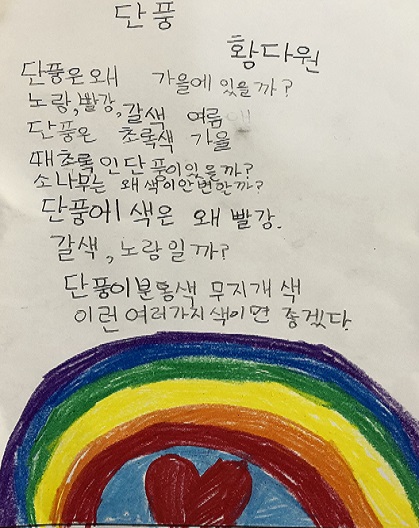 단풍
황다원
단풍은 왜 가을에 있을까?
노랑,빨강,갈색 여름
단풍은 초록색 가을
때 초록인 단풍이 있을까?
소나무는 왜 색이 안 변할까?
단풍에 색은 왜 빨강.
갈색, 노랑일까?
단풍이 분홍색 무지개 색
이런 여러가지 색이면 좋겠다.